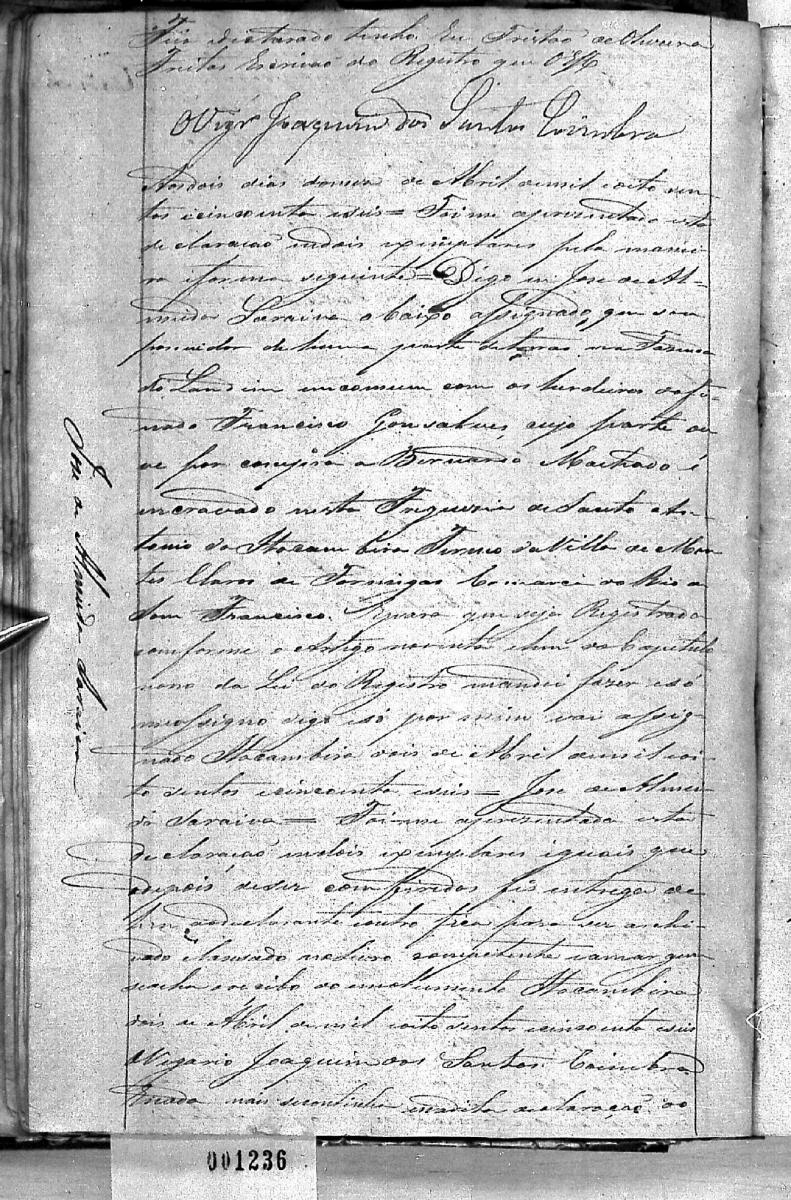 Fiz declarado tenho Eu Tristão de Oliveira
Freitas Escrivaõ do Registro que o Esc
O Vigrº Joaquim dos Santos Coimbra
Aos dois dias do mez de Abril de mil e oito sen
tos e cincoenta e seis = Foi me aprezentado esta
declaraçaõ em dois exemplares pela manei
ra e forma seguinte = Digo eu Jose de Al
meida Saraiva o baixo assignado, que sou
possuidor de huma parte de terras na Fazenda
do Landim em comum com os herdeiros do fi
nado Francisco Gonsalves, cuja parte ou
ve por compra a Bernardo Machado é
encravado nesta Freguezia de Santo An
tonio da Itacambira Termo da Villa de Mon
tes Claros de Formigas Comarca do Rio de
Sam Francisco. E para que seja Registrado
comforme o Artigo noventa e hum do Capitulo
nono da Lei do Registro mandei fazer e só
me assigno digo e só por mim vai assig
nado Itacambira dois de Abril de mil e oi
to sentos e cincoenta e seis = Jose de Almei
da Saraiva = Foi me aprezentada esta
declaraçaõ em dois exemplares iguais que
depois de ser com feridos fis entrega de
hum ao declarante e outro fica para ser archi
vado e lansado no livro competente e a margem
se acha o recibo do emolumento Itacambira
dois de Abril de mil e oito sentos e cincoenta e seis
O Vigario Joaquim dos Santos Coimbra
E nada mais se continha em a dita declaraçaõ ao
Jose de Almeida Saraiva
001236